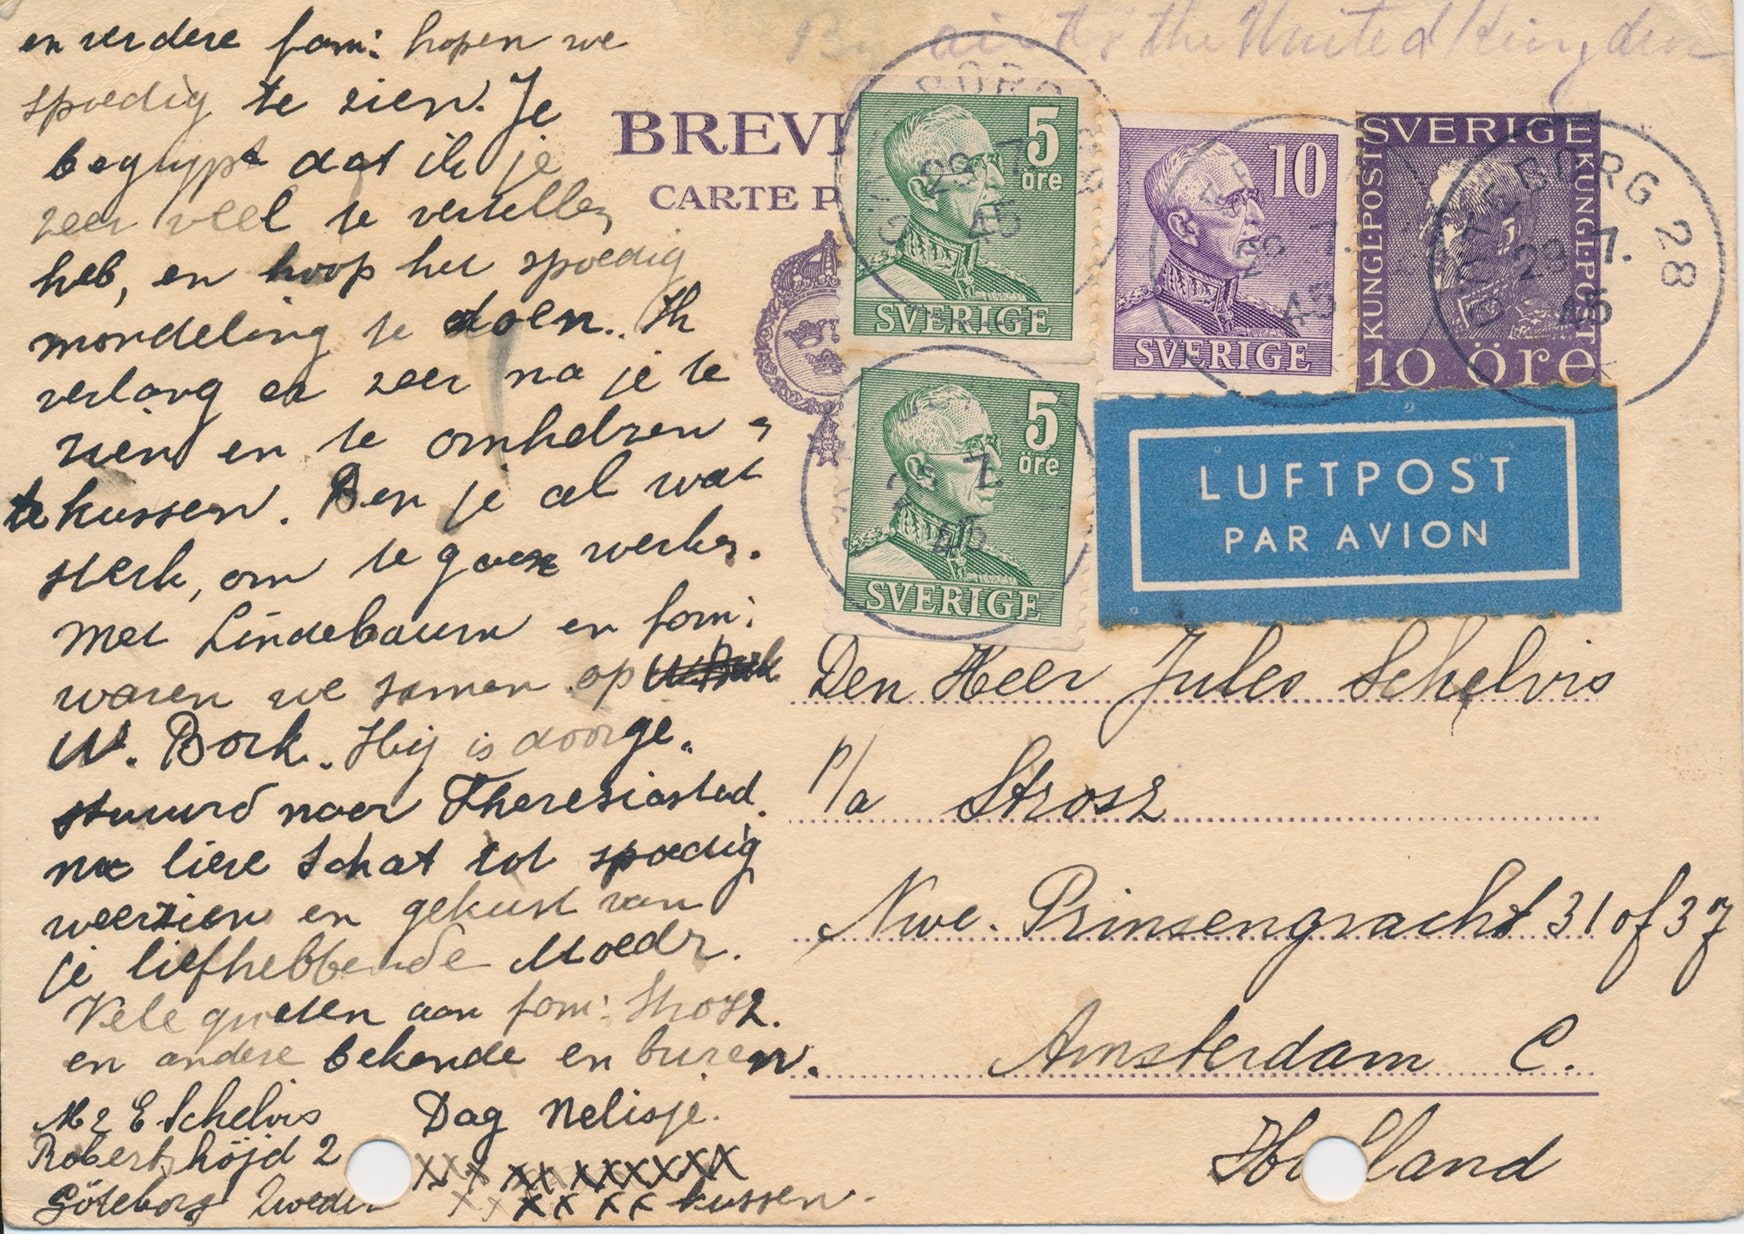 en verdere fam: hopen we
spoedig te zien. Je
begrijpt dat ik je
zeer veel te vertellen
heb, en hoop het spoedig
mondeling te doen. Ik
verlang er zeer na je te
zien en te omhelzen,
te kussen. Ben je al wat
sterk, om te gaan werken.
Met Lindebaum en fam:
waren we samen op
W. Bork. Hij is doorge-
stuurd naar Theresiastad.
nu lieve schat tot spoedig
weerzien en gekust van
je liefhebbende Moedr.
Vele groeten aan fam: Strosz.
en andere bekende en buren.
Dag Nelisje.
xxx xx xxxxxx
xx xx xx kussen.
E Schelvis
Robertshöjd 2
Göteborg Zweden
By air to the United Kingdom
BREV
CARTE P
5 öre
SVERIGE
5 öre
SVERIGE
10
SVERIGE
SVERIGE
KUNGL·POST
KUNGL·POST
10 öre
GÖTEBORG 28
29 7.
45
LUFTPOST
PAR AVION
Den Heer Jules Schelvis
p/a Strosz
Nwe. Prinsengracht 31 of 37
Amsterdam C.
Holland